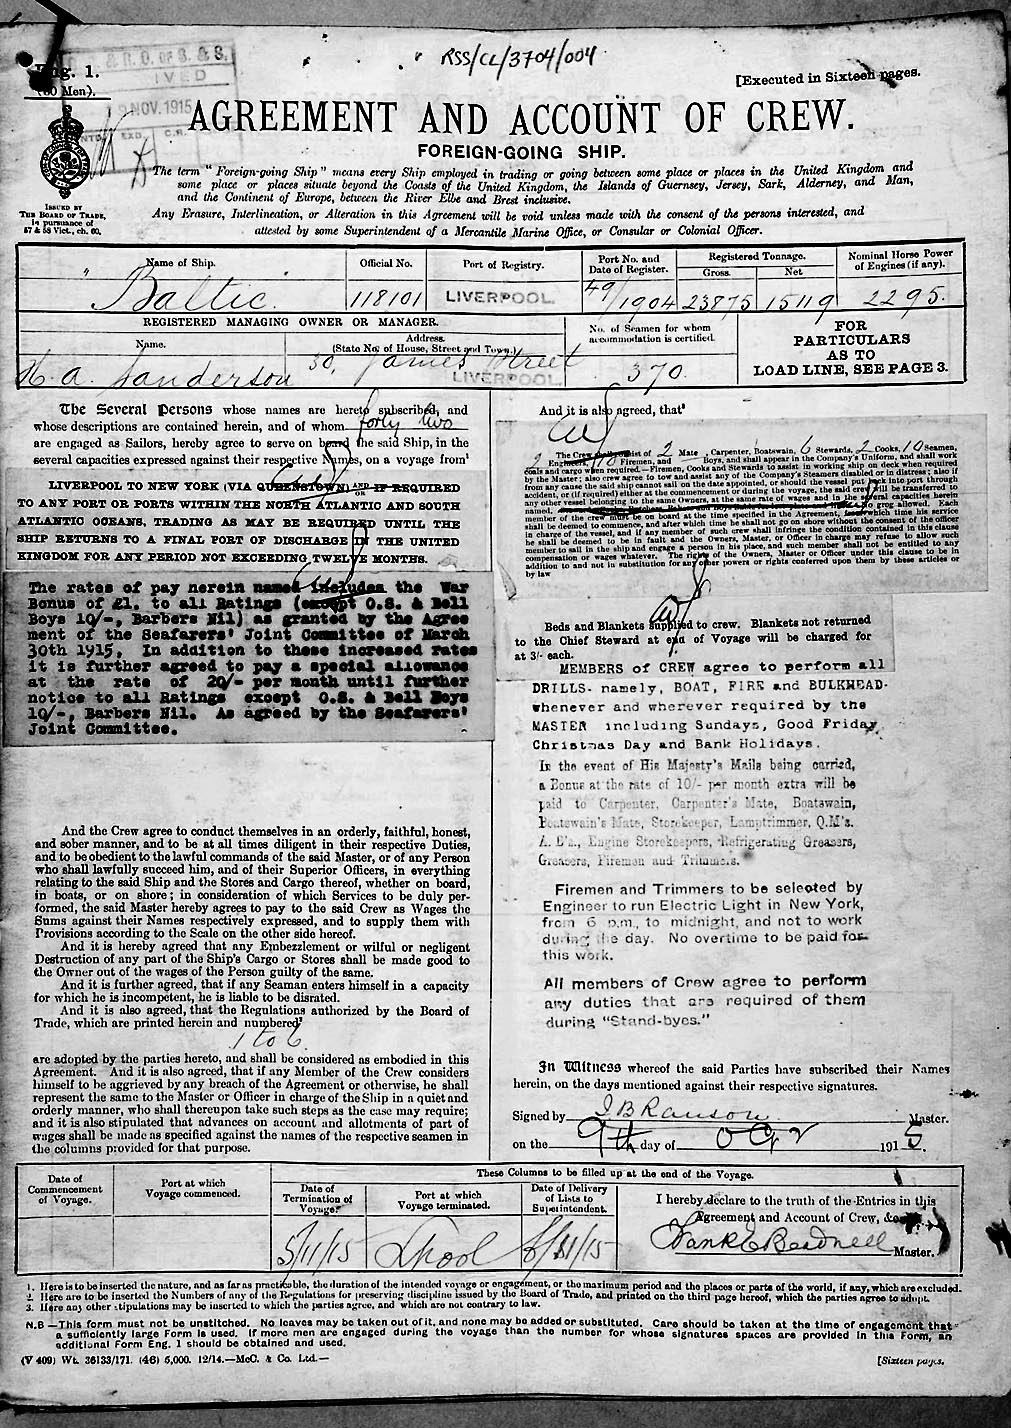 RSS/CL/3704/004
Eng. 1.
(60 Men).
R.G. OF S. & S.
IVED
NOV. 1915
EXD. C.R.
[Executed in Sixteen pages.
AGREEMENT AND ACCOUNT OF CREW.
FOREIGN-GOING SHIP.
ISSUED BY
THE BOARD OF TRADE,
in pursuance of
57 & 58 Vict., ch. 60.
The term "Foreign-going Ship" means every Ship employed in trading or going between some place or places in the United Kingdom and
some place or places situate beyond the Coasts of the United Kingdom, the Islands of Guernsey, Jersey, Sark, Alderney, and Man,
and the Continent of Europe, between the River Elbe and Brest inclusive.
Any Erasure, Interlineation, or Alteration in this Agreement will be void unless made with the consent of the persons interested, and
attested by some Superintendent of a Mercantile Marine Office, or Consular or Colonial Officer.
Name of Ship. Official No. Port of Registry. Port No. and Date of Register. Registered Tonnage. Gross. Net Nominal Horse Power of Engines (if any).
"Baltic. 118101 LIVERPOOL. 49/1904 23875 15119 2295.
REGISTERED MANAGING OWNER OR MANAGER.
Name. Address. (State No. of House, Street and Town.)
No. of Seamen for whom accommodation is certified.
H. A. Sanderson 30, James Street LIVERPOOL. 370
FOR
PARTICULARS
AS TO
LOAD LINE, SEE PAGE 3.
The Several Persons whose names are hereto subscribed, and
whose descriptions are contained herein, and of whom forty two
are engaged as Sailors, hereby agree to serve on board the said Ship, in the
several capacities expressed against their respective Names, on a voyage from¹
LIVERPOOL TO NEW YORK (VIA QUEENSTOWN) AND OR IF REQUIRED
TO ANY PORT OR PORTS WITHIN THE NORTH ATLANTIC AND SOUTH
ATLANTIC OCEANS, TRADING AS MAY BE REQUIRED UNTIL THE
SHIP RETURNS TO A FINAL PORT OF DISCHARGE IN THE UNITED
KINGDOM FOR ANY PERIOD NOT EXCEEDING TWELVE MONTHS.
The rates of pay herein named includes the War
Bonus of £1. to all Ratings (except O.S. & Bell
Boys 10/-, Barbers Nil) as granted by the Agree
ment of the Seafarers' Joint Committee of March
30th 1915. In addition to these increased rates
it is further agreed to pay a special allowance
at the rate of 20/- per month until further
notice to all Ratings except O.S. & Bell Boys
10/-, Barbers Nil. As agreed by the Seafarers'
Joint Committee.
And the Crew agree to conduct themselves in an orderly, faithful, honest,
and sober manner, and to be at all times diligent in their respective Duties,
and to be obedient to the lawful commands of the said Master, or of any Person
who shall lawfully succeed him, and of their Superior Officers, in everything
relating to the said Ship and the Stores and Cargo thereof, whether on board,
in boats, or on shore; in consideration of which Services to be duly per-
formed, the said Master hereby agrees to pay to the said Crew as Wages the
Sums against their Names respectively expressed, and to supply them with
Provisions according to the Scale on the other side hereof.
And it is hereby agreed that any Embezzlement or wilful or negligent
Destruction of any part of the Ship's Cargo or Stores shall be made good to
the Owner out of the wages of the Person guilty of the same.
And it is further agreed, that if any Seaman enters himself in a capacity
for which he is incompetent, he is liable to be disrated.
And it is also agreed, that the Regulations authorized by the Board of
Trade, which are printed herein and numbered²
1 to 6
are adopted by the parties hereto, and shall be considered as embodied in this
Agreement. And it is also agreed, that if any Member of the Crew considers
himself to be aggrieved by any breach of the Agreement or otherwise, he shall
represent the same to the Master or Officer in charge of the Ship in a quiet and
orderly manner, who shall thereupon take such steps as the case may require;
and it is also stipulated that advances on account and allotments of part of
wages shall be made as specified against the names of the respective seamen in
the columns provided for that purpose.
And it is also agreed, that³
The Crew shall consist of 2 Mate, Carpenter, Boatswain, 6 Stewards, 2 Cooks, 10 Seamen,
2 Engineers, 10 Firemen, and Boys, and shall appear in the Company's Uniform, and shall work
coals and cargo when required.—Firemen, Cooks and Stewards to assist in working ship on deck when required
by the Master; also crew agree to tow and assist any of the Company's Steamers disabled or in distress; also if
from any cause the said ship cannot sail on the date appointed, or should the vessel put back into port through
accident, or (if required) either at the commencement or during the voyage, the said crew will be transferred to
any other vessel belonging to the same Owners, at the same rate of wages and in the several capacities herein
named, no grog allowed. Each
member of the crew must be on board at the time specified in the Agreement, from which time his service
shall be deemed to commence, and after which time he shall not go on shore without the consent of the officer
in charge of the vessel, and if any member of such crew shall infringe the condition contained in this clause
he shall be deemed to be in fault and the Owners, Master, or Officer in charge may refuse to allow such
member to sail in the ship and engage a person in his place, and such member shall not be entitled to any
compensation or wages whatever. The rights of the Owners, Master or Officer under this clause to be in
addition to and not in substitution for any other powers or rights conferred upon them by these articles or
by law
Beds and Blankets supplied to crew. Blankets not returned
to the Chief Steward at end of Voyage will be charged for
at 3/- each.
MEMBERS of CREW agree to perform all
DRILLS- namely, BOAT, FIRE and BULKHEAD-
whenever and wherever required by the
MASTER including Sundays, Good Friday,
Christmas Day and Bank Holidays.
In the event of His Majesty's Mails being carried,
a Bonus at the rate of 10/- per month extra will be
paid to Carpenter, Carpenter's Mate, Boatswain,
Boatswain's Mate, Storekeeper, Lamptrimmer, Q.M's.
A. B's., Engine Storekeepers, Refrigerating Greasers,
Greasers, Firemen and Trimmers.
Firemen and Trimmers to be selected by
Engineer to run Electric Light in New York,
from 6 p.m., to midnight, and not to work
during the day. No overtime to be paid for
this work.
All members of Crew agree to perform
any duties that are required of them
during "Stand-byes."
In Witness whereof the said Parties have subscribed their Names
herein, on the days mentioned against their respective signatures.
Signed by J B Ranson Master.
on the 9th day of Octr 1915.
These Columns to be filled up at the end of the Voyage.
Date of Commencement of Voyage. Port at which Voyage commenced. Date of Termination of Voyage. Port at which Voyage terminated. Date of Delivery of Lists to Superintendent.
5/11/15 Lpool 6/11/15
I hereby declare to the truth of the Entries in this
Agreement and Account of Crew, &c.
Frank E Beadnell Master.
1. Here is to be inserted the nature, and as far as practicable, the duration of the intended voyage or engagement, or the maximum period and the places or parts of the world, if any, which are excluded.
2. Here are to be inserted the Numbers of any of the Regulations for preserving discipline issued by the Board of Trade, and printed on the third page hereof, which the parties agree to adopt.
3. Here any other stipulations may be inserted to which the parties agree, and which are not contrary to law.
N.B—This form must not be unstitched. No leaves may be taken out of it, and none may be added or substituted. Care should be taken at the time of engagement that
a sufficiently large Form is used. If more men are engaged during the voyage than the number for whose signatures spaces are provided in this Form, an
additional Form Eng. 1 should be obtained and used.
(V 409) Wt. 36133/171. (46) 5,000. 12/14.—McC. & Co. Ltd.—
[Sixteen pages.